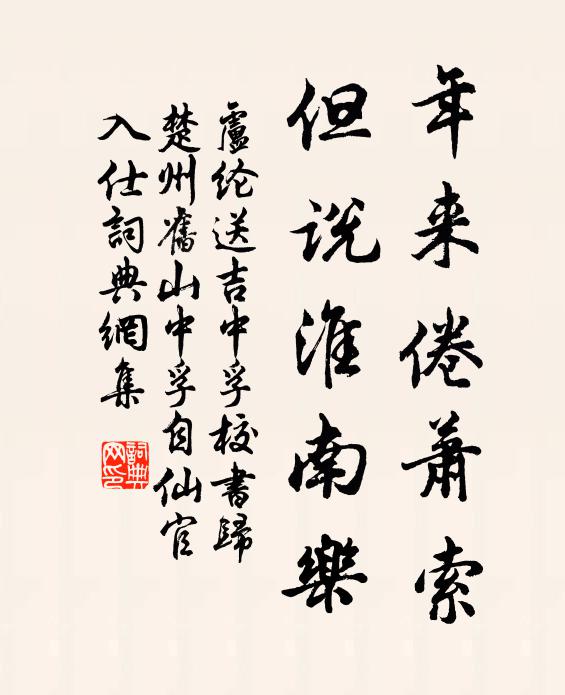 年来倦蕭索
但说淮南樂
盧纶送吉中孚校書歸
楚州舊山中孚自仙官
入仕詞典網集
詞典
网印